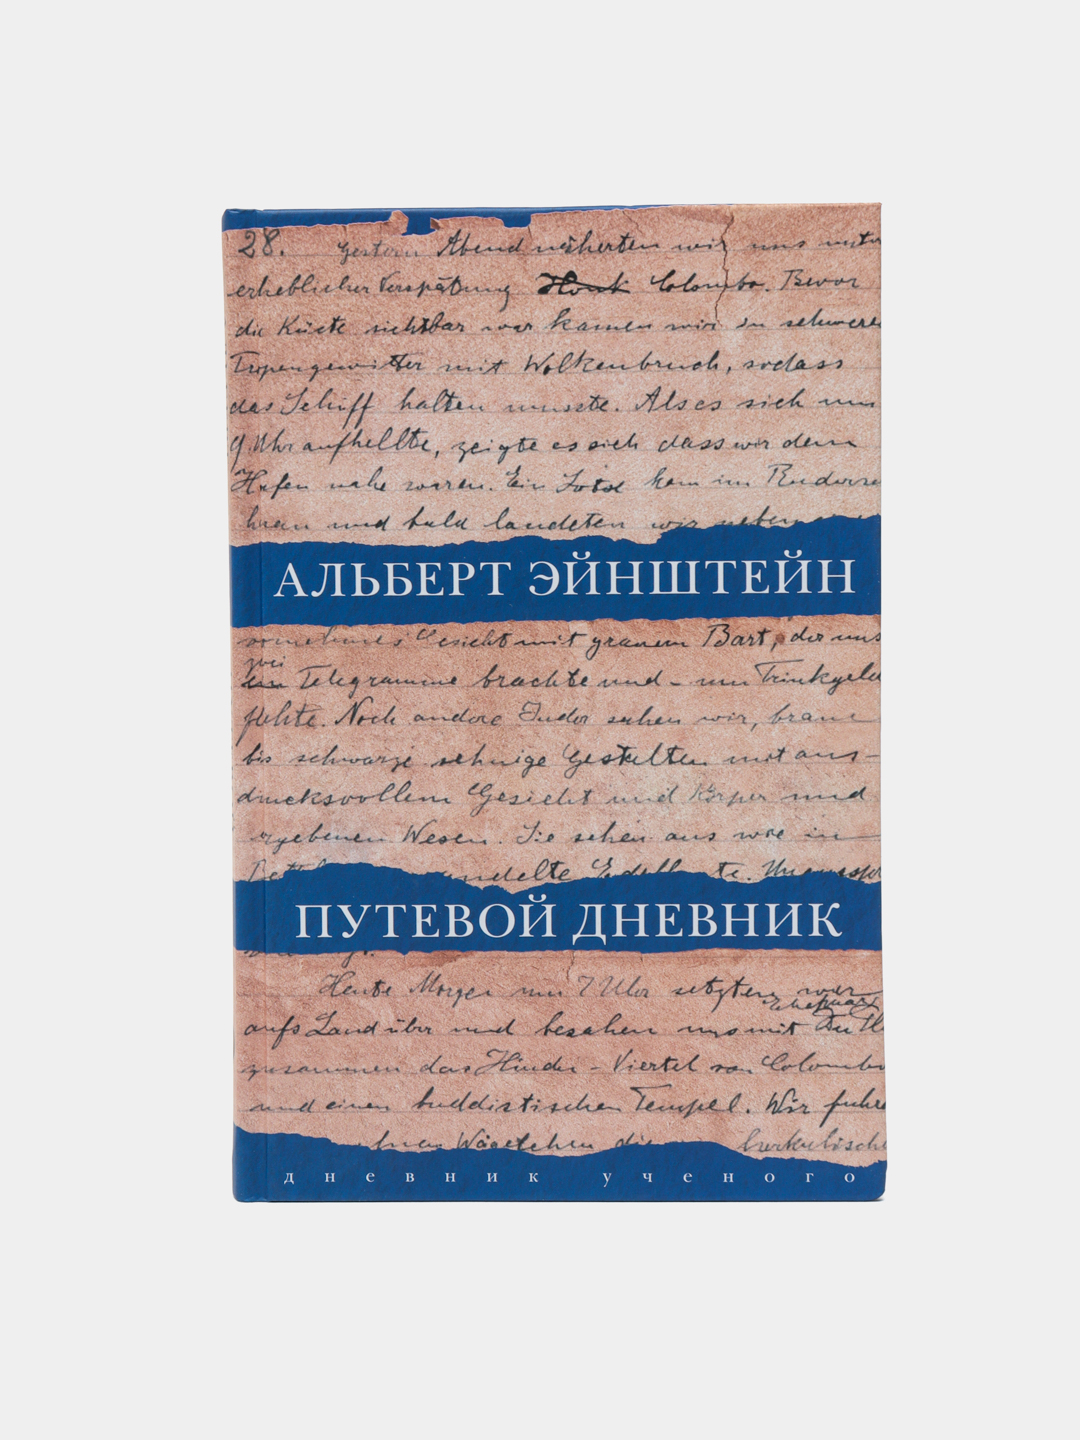 28. Gestern Abend näherten wir uns unter
erheblicher Verspätung Colombo. Bevor
die Küste sichtbar war kamen wir in schwere
Tropengewitter mit Wolkenbruch, sodass
das Schiff halten musste. Als es sich um
9 Uhr aufhellte, zeigte es sich dass wir dem
Hafen nahe waren. Ein Lotse kam im
und bald landeten wir neben
АЛЬБЕРТ ЭЙНШТЕЙН
Gesicht mit grauem Bart, der uns
zwei
ein Telegramme brachte und – um Trinkgeld
flehte. Noch andere Inder sehen wir, braune
bis schwarze sehnige Gestalten mit aus-
drucksvollem Gesicht und Körper und
ergebenem Wesen. Sie sehen aus wie in
ПУТЕВОЙ ДНЕВНИК
Heute Morgen um 7 Uhr setzten wir
aufs Land über und besahen uns mit
zusammen das Hindu-Viertel von Colombo
und einen buddistischen Tempel. Wir fuhren
Wägelchen die herkulische
дневник ученого